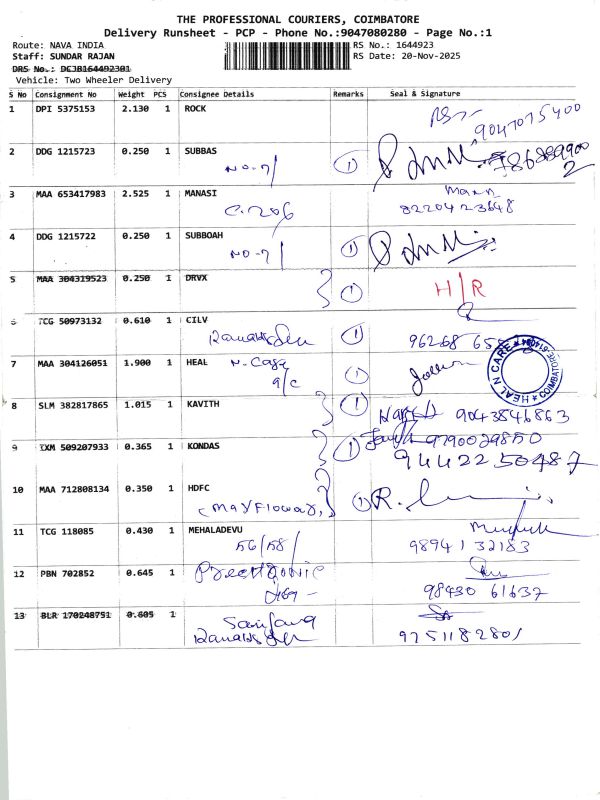 THE PROFESSIONAL COURIERS, COIMBATORE
Delivery Runsheet - PCP - Phone No.:9047080280 - Page No.:1
Route: NAVA INDIA
RS No.: 1644923
Staff: SUNDAR RAJAN
RS Date: 20-Nov-2025
DRS No.: DCJB164492301
Vehicle: Two Wheeler Delivery
S No Consignment No Weight PCS Consignee Details Remarks Seal & Signature
1 DPI 5375153 2.130 1 ROCK
9047075400
2 DDG 1215723 0.250 1 SUBBAS
NO-7/ 1
3 MAA 653417983 2.525 1 MANASI
C.206 8220423648
4 DDG 1215722 0.250 1 SUBBOAH
NO-7/ 1
5 MAA 304319523 0.250 1 DRVX
1 H/R
6 TCG 50973132 0.610 1 CILV
1 96268
7 MAA 304126051 1.900 1 HEAL N. Case
9/C 1
HEAL N CARE COIMBATORE
8 SLM 382817865 1.015 1 KAVITH 1
9043846863
9790029850
9 IXM 509207933 0.365 1 KONDAS 1
9442250487
10 MAA 712808134 0.350 1 HDFC
(Mayflower, 1
11 TCG 118085 0.430 1 MEHALADEVU
56/58/ 9894132183
12 PBN 702852 0.645 1
98430 61637
13 BLR 170248751 0.605 1
9751182801